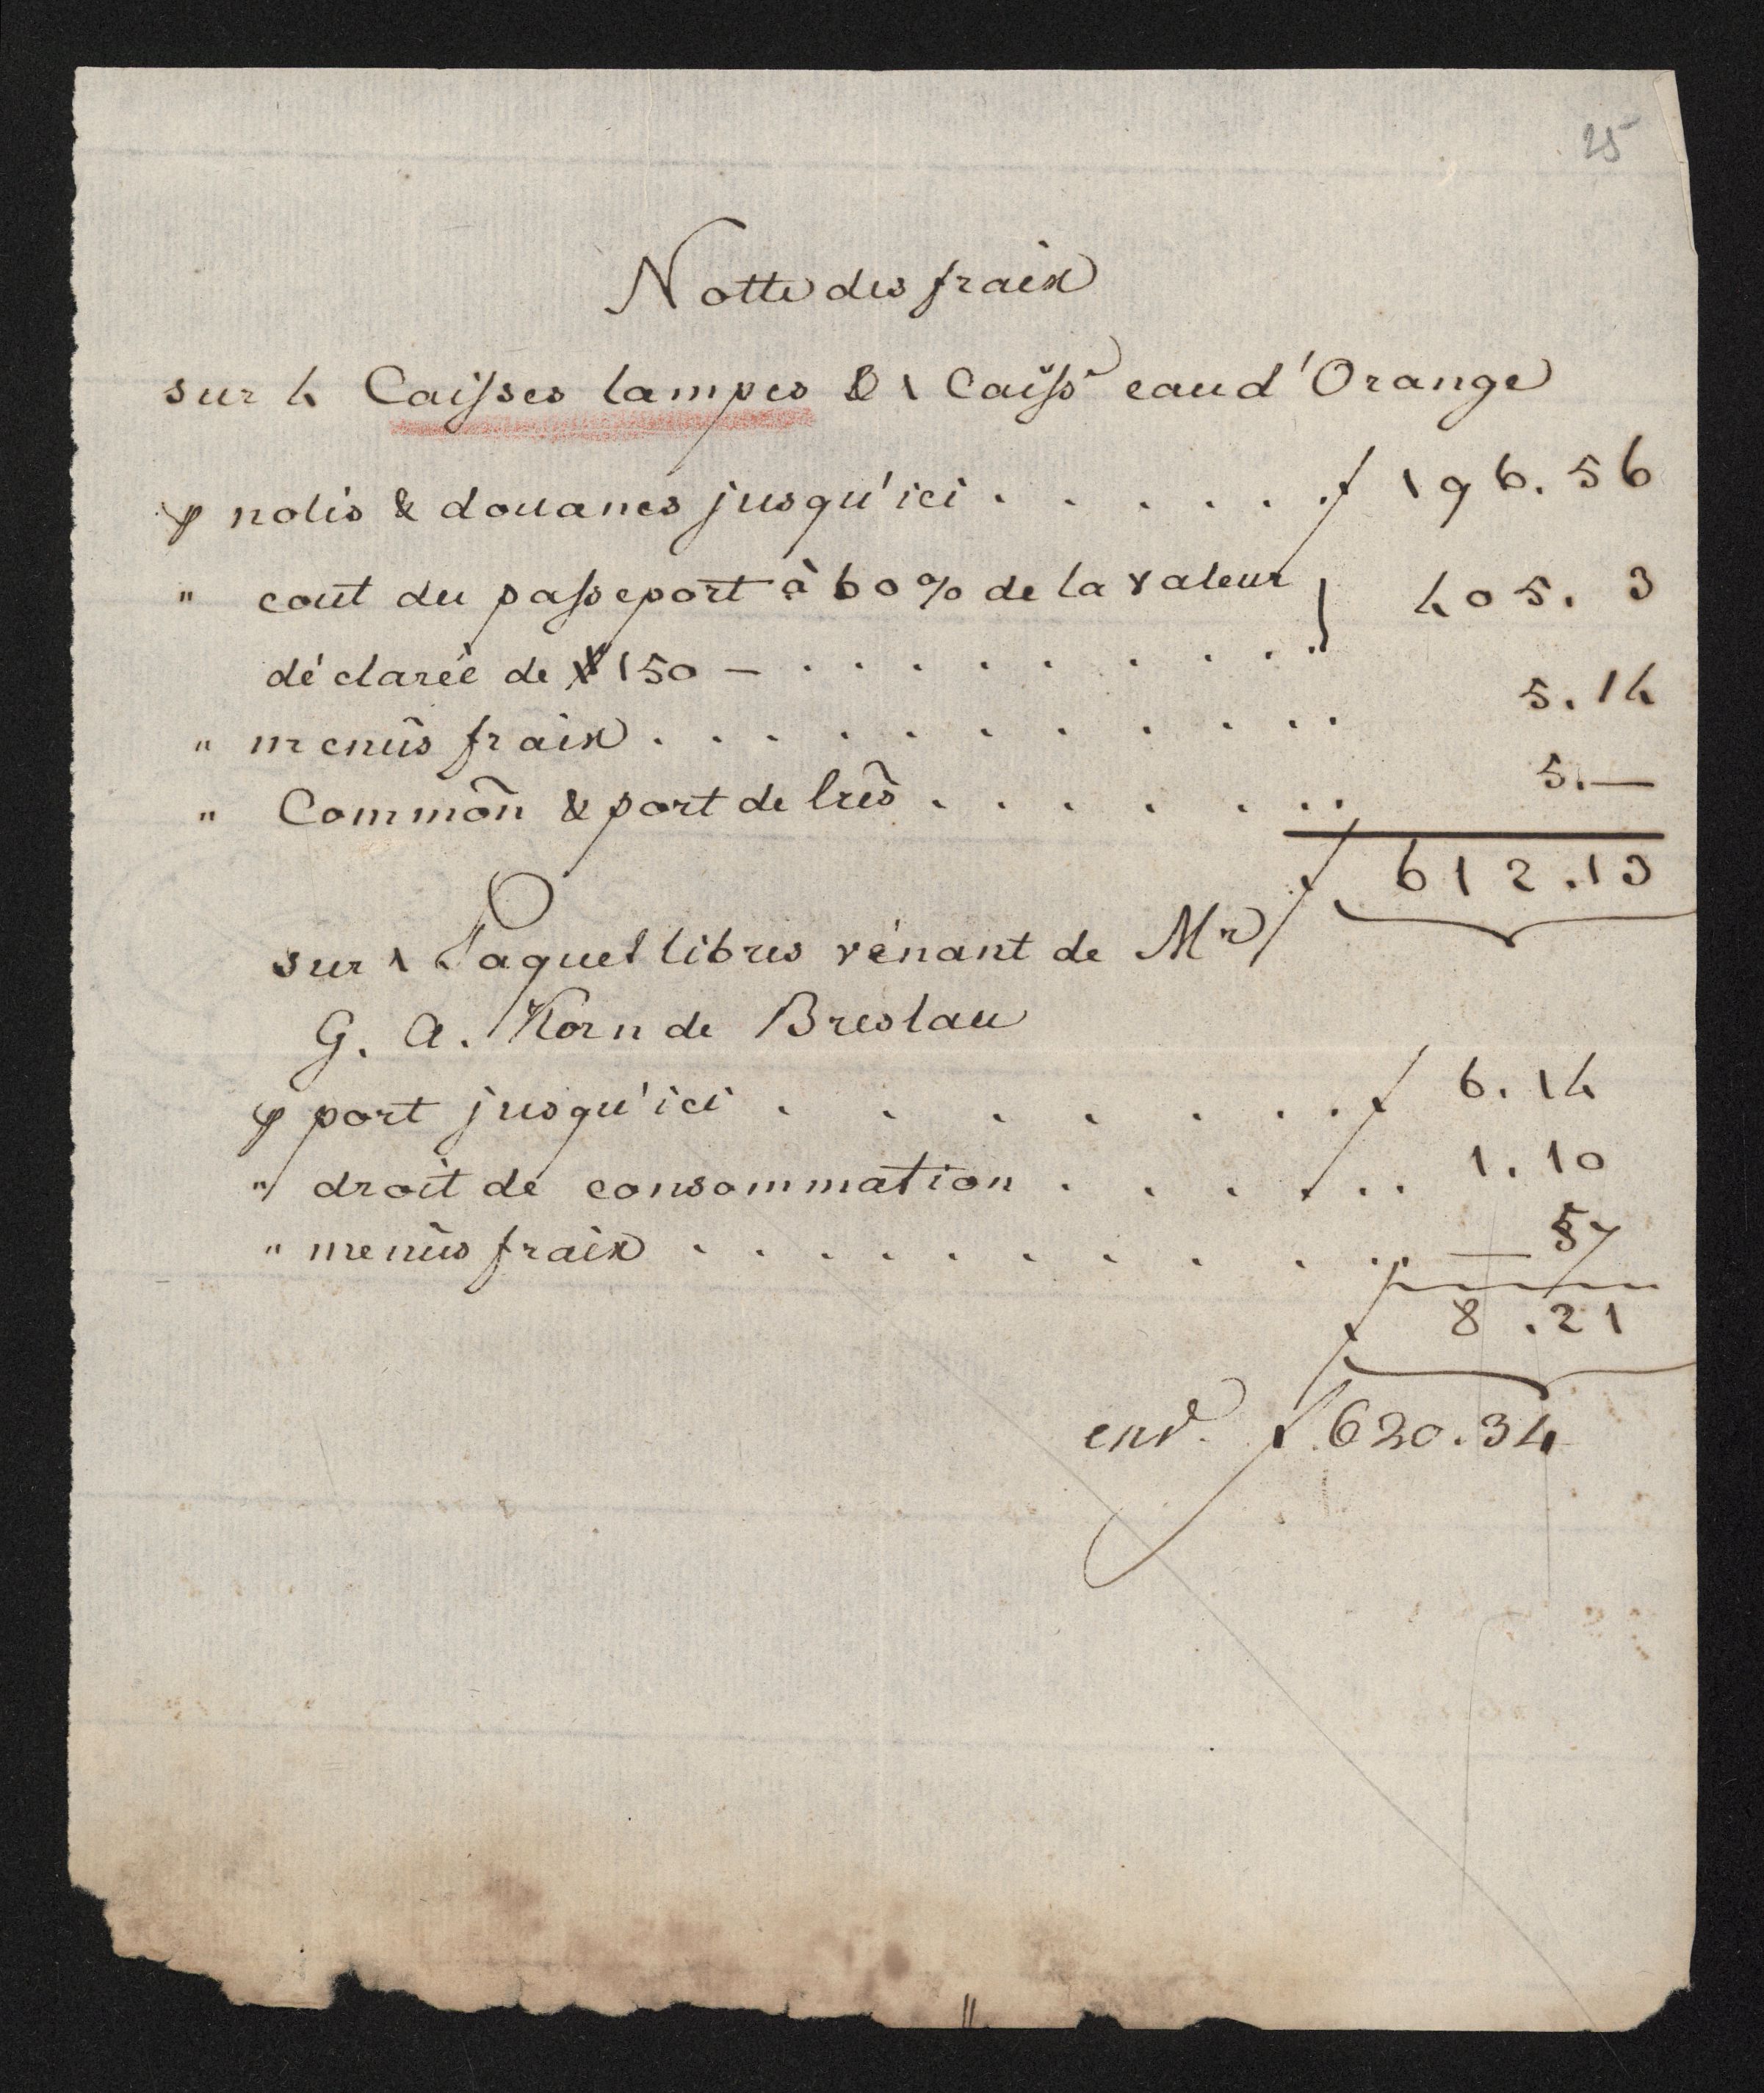 25
Notte des fraix
sur 4 Caisses lampes & 1 Caiss^e eau d'Orange
p nolis & douanes jusqu'ici . . . . . . f 196.56
" cout du passeport à 60% de la valeur 405. 3
déclareé de # 150 — . . . . . . . . .
" menûs fraix . . . . . . . . . . 5.14
" Common̄ & port de lrēs . . . . . . 5.—
f 612.13
sur 1 Paquet libres vénant de Mr
G. A. Korn de Breslau
p port jusqu'ici . . . . . . . f 6.14
" droit de consommation . . . . . . 1.10
" menûs fraix . . . . . . . . . . — 57
f 8.21
env. f 620.34